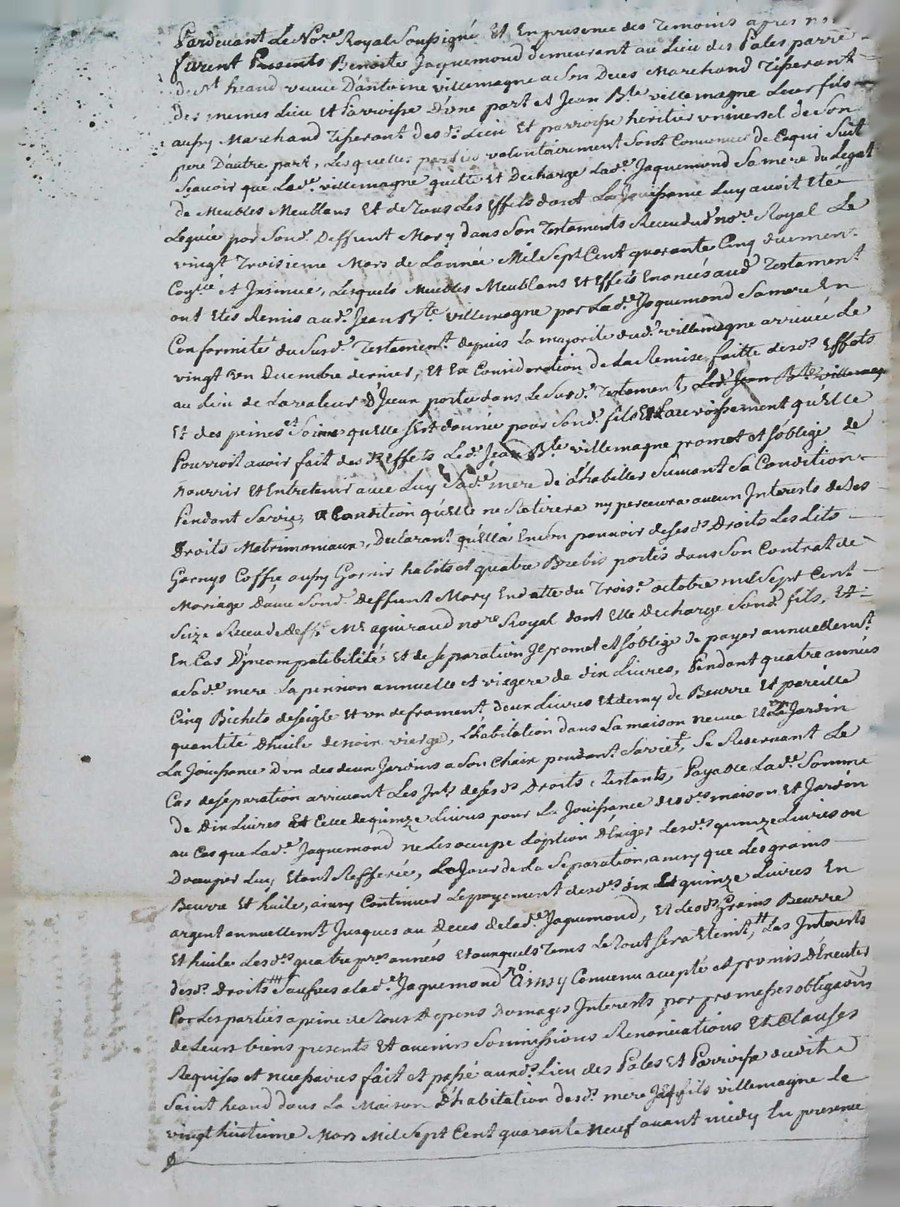 Pardevant Le Nore. Royal Soussigné Et En presence des Temoins apres
furent Presents Benoite Jaquemond demeurant au Lieu des Pales parre
de St. heand veuve D'antoine villemagne a son Deces Marchand Tiserant
des memes Lieu Et Parroisse D'une part et Jean Bte. villemagne Leur fils
aussy Marchand Tiserant desd. Lieu Et parroisse heritier universel de son
pere D'autre part, Lesquelles parties volontairement Sont Convenues de Cequi Suit
Scavoir que Led. villemagne quitte Et Decharge Lade. Jaquemond Sa mere du Legat
de Meubles Meublans Et de Tous Les Effets dont La Jouissance Luy avoit Eté
Leguée par Sond. Deffunt Mary dans Son Testament Receu dud. nore. Royal Le
vingt Troisieme Mars de L'année Mil Sept Cent quarante Cinq duement
Conlle. et Insinué, Lesquels Meubles Meublans Et Effets Enoncés aud. Testament
ont Etés Remis aud. Jean Bte. villemagne par Lade. Jaquemond Sa mere En
Conformité du Susd. Testament depuis La majorité dud. villemagne arrivée Le
vingt en Decembre dernier, Et En Consideration de La Remise faitte desds. Effets
au Lieu de La valeur D'Iceux portée dans Le Susd. Testament, Led. Jean Bte. villemagne
Et des peines Et Soins qu'elle s'est donnée pour Sond. fils Et
Pourroit avoir fait des Effets Led. Jean Bte. villemagne promet et s'oblige de
nourrir Et Entretenir avec Luy Sade. mere de L'habiller Suivant Sa Condition
Pendant Savie, a Condition qu'elle ne Retirera ny percevra aucun Interets de Ses
Droits Matrimoniaux, Declarant qu'Ella En Son pouvoir desesds. Droits Les Lits
Garnys Coffre aussy Garnis habits et quatre Brebis portés dans Son Contrat de
Mariage avec Sond. deffunt Mary En datte du Trois. octobre mil Sept Cent
Seize Receu de deft. Me. aguiraud nore. Royal dont Elle decharge Sond. fils, Et
En Cas D'Incompatibilité Et de separation Il promet et s'oblige de payer annuellemt.
a Sade. mere La pension annuelle et viagere de dix Livres, Pendant quatre années
Cinq Bichets de Seigle Et un de froment, deux Livres Et demy de Beurre Et pareille
quantité d'huile de noix vierge, L'habitation dans La maison neuve Et Le Jardin
La Jouissance D'un des deux Jardins a Son Choix pendant Savie, Se Reservant Le
Cas de Separation arrivant Les Ints. de Sesds. Droits Restants, Payable Lade. Somme
De Dix Livres Et Celle de quinze Livres pour La Jouissance desds. maison Et Jardin
au Cas que Lade. Jaquemond ne Les occupe L'option d'Exiger Lesds. quinze Livres ou
D'occuper Luy Etant Refferée, Le Jour de La Separation, ainsy que Les grains
Beurre Et huile, ainsy Continuer Le payement desds. dix Et quinze Livres En
argent annuellemt. Jusques au deces de Lade. Jaquemond, Et desds. Grains Beurre
Et huile Lesds. quatre pres. années Et auxquels Tems Le Tout Sera Eteint, Les Interets
desd. Droits Saufves a Lade. Jaquemond Ainsy Convenu accepté et promis D'Executer
Par Les parties a peine de Tous Depens Domages Interests par promesses obligaons
de Leurs biens presents Et avenirs Soumissions Renonciations Et Clauses
Requises et necessaires fait et passé aud. Lieu des Pales Et Parroisse dudit
Saint heand dans La Maison D'habitation desd. mere Et fils villemagne Le
vingt huitieme Mars Mil Sept Cent quarante Neuf avant midy En presence